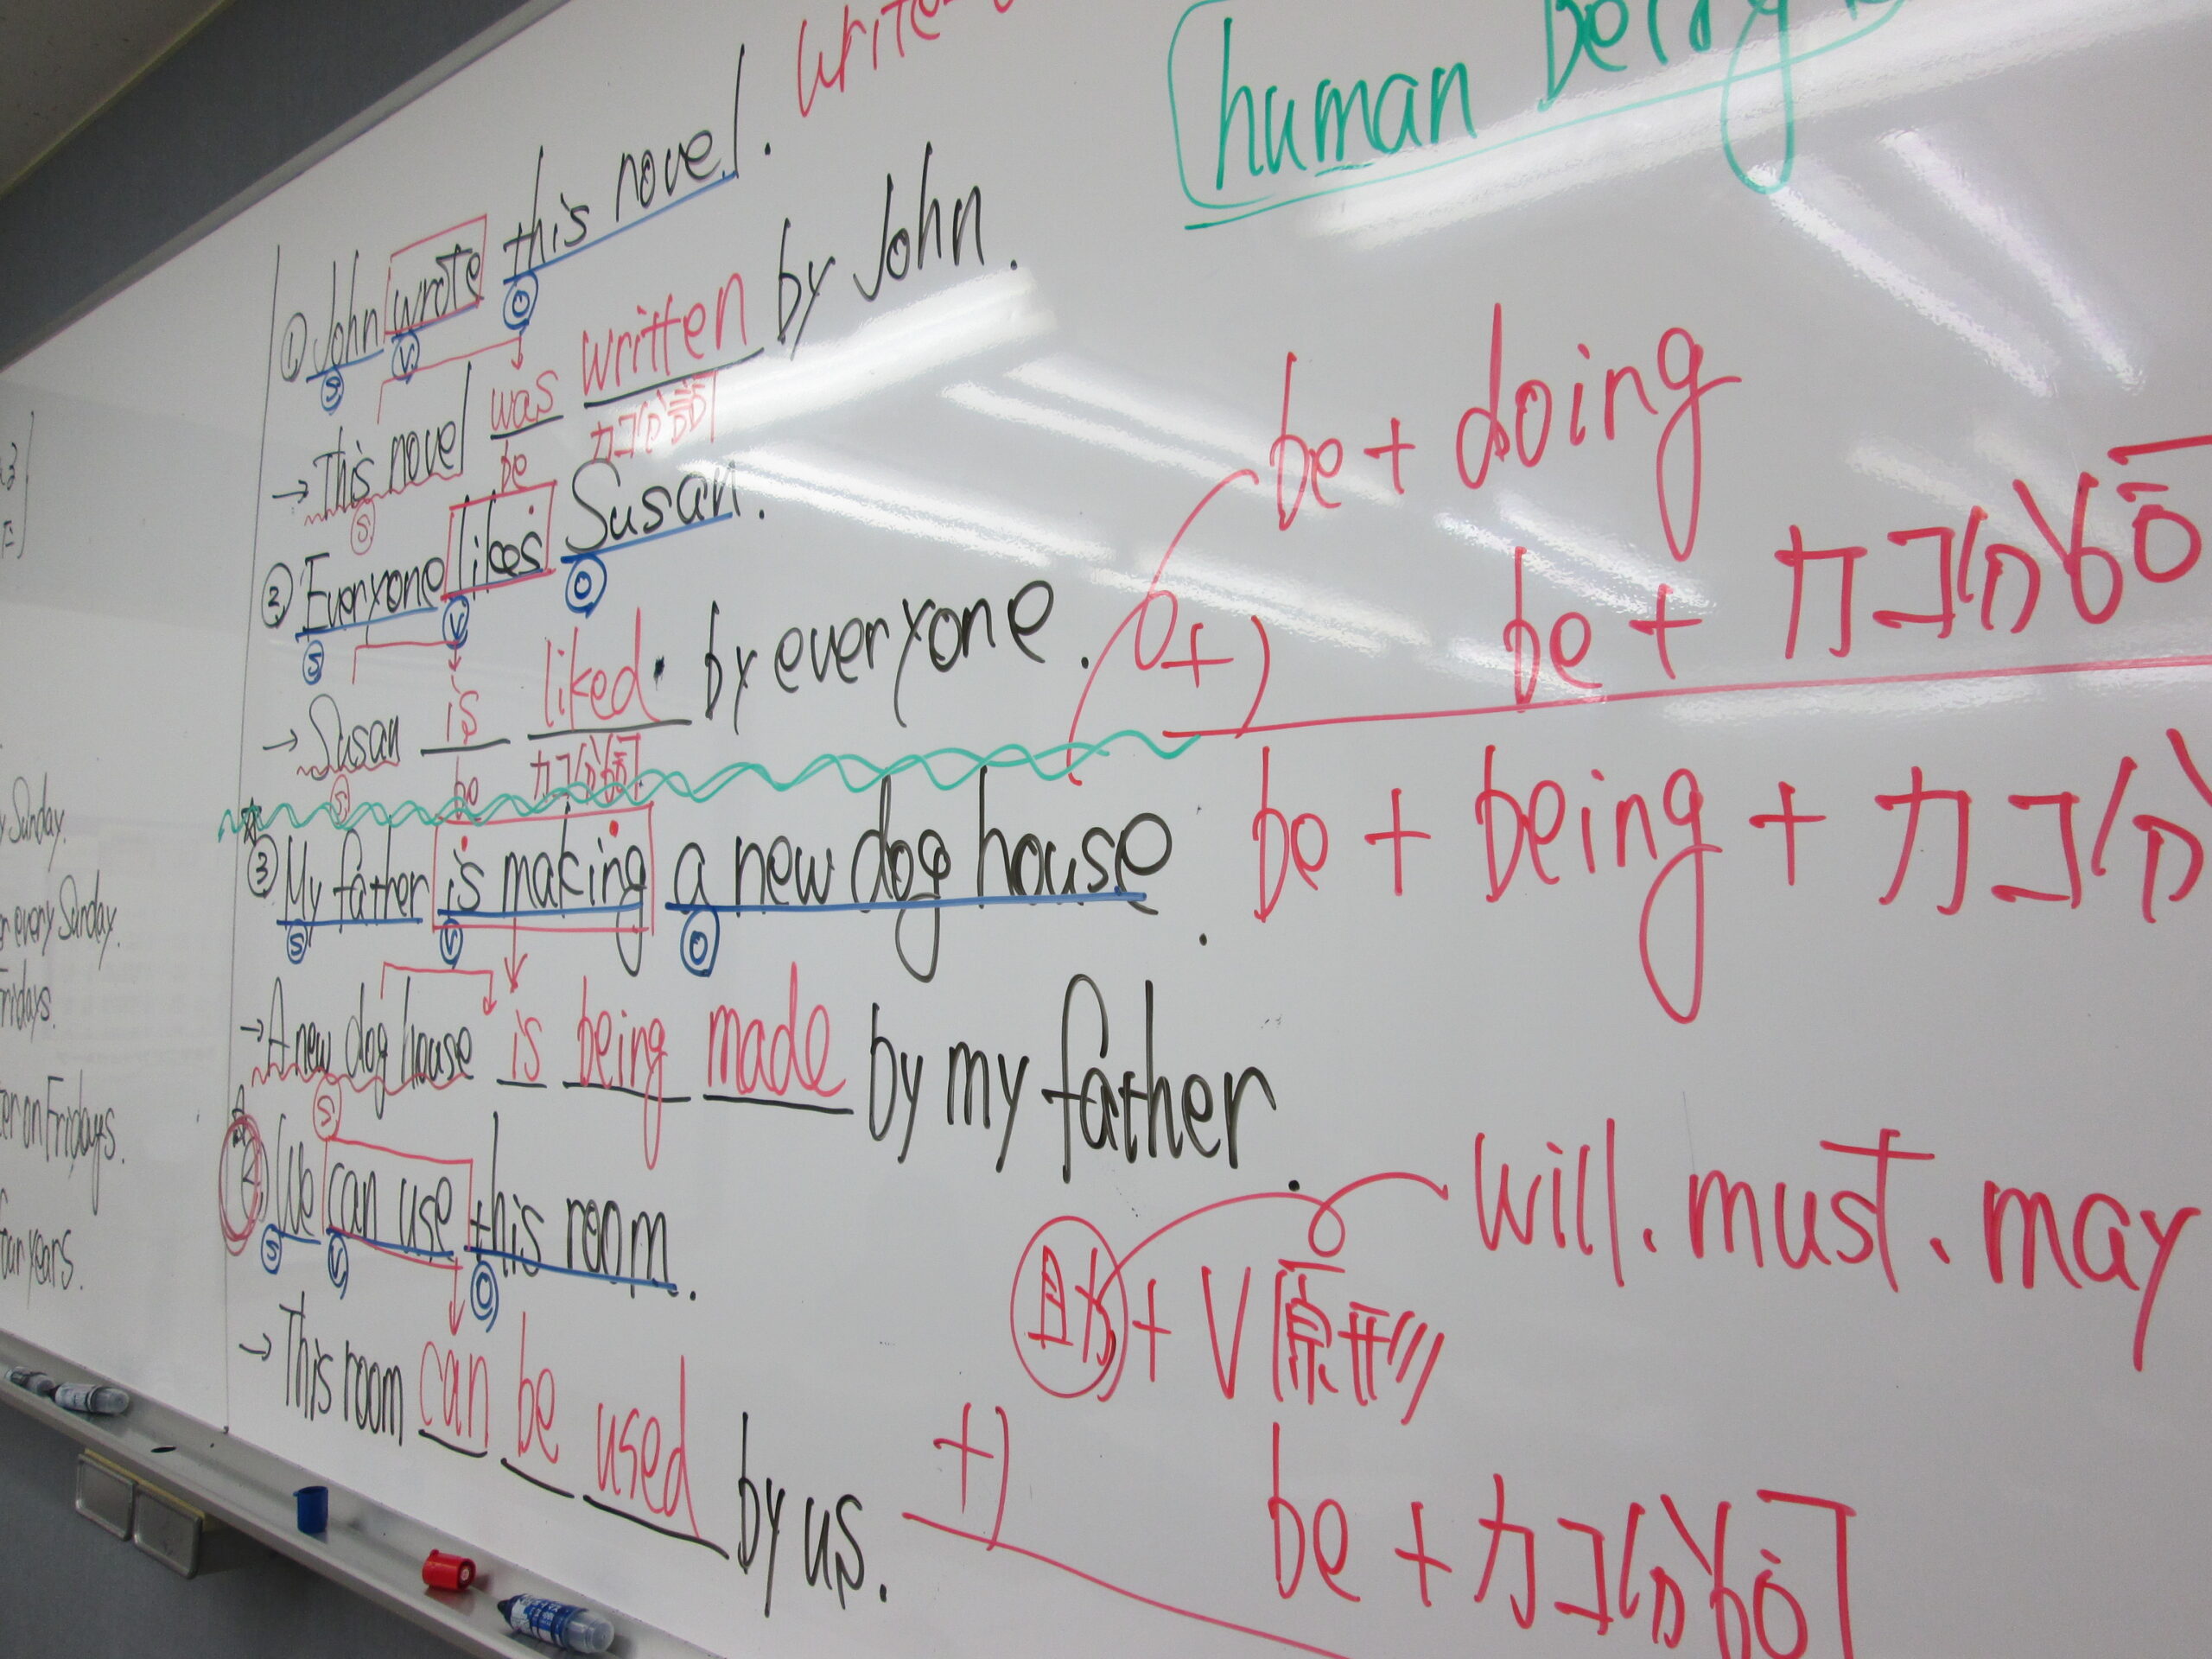 write
human being
① John wrote this novel.
S V O
→ This novel was written by John.
S be カコ分詞
② Everyone likes Susan.
S V O
→ Susan is liked by everyone.
S be カコ分詞
③ My father is making a new dog house.
S V O
→ A new dog house is being made by my father.
S
We can use this room.
S V O
→ This room can be used by us.
be + doing
+) be + カコ分詞
be + being + カコ分
will. must. may
助 + V原形
+) be + カコ分詞
y Sunday.
every Sunday.
Fridays.
on Fridays.
years.